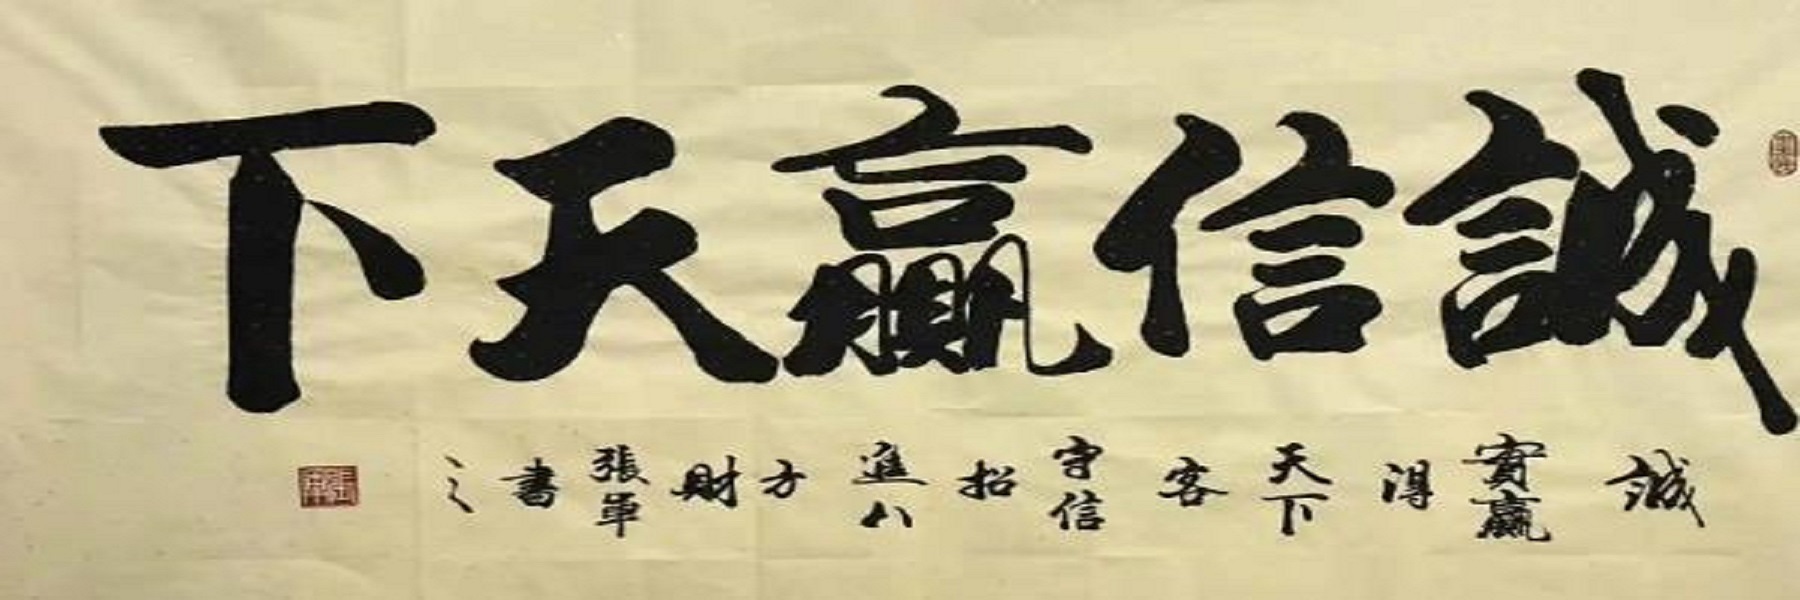 誠信贏天下
誠實贏得天下客守信招進八方財張軍書之